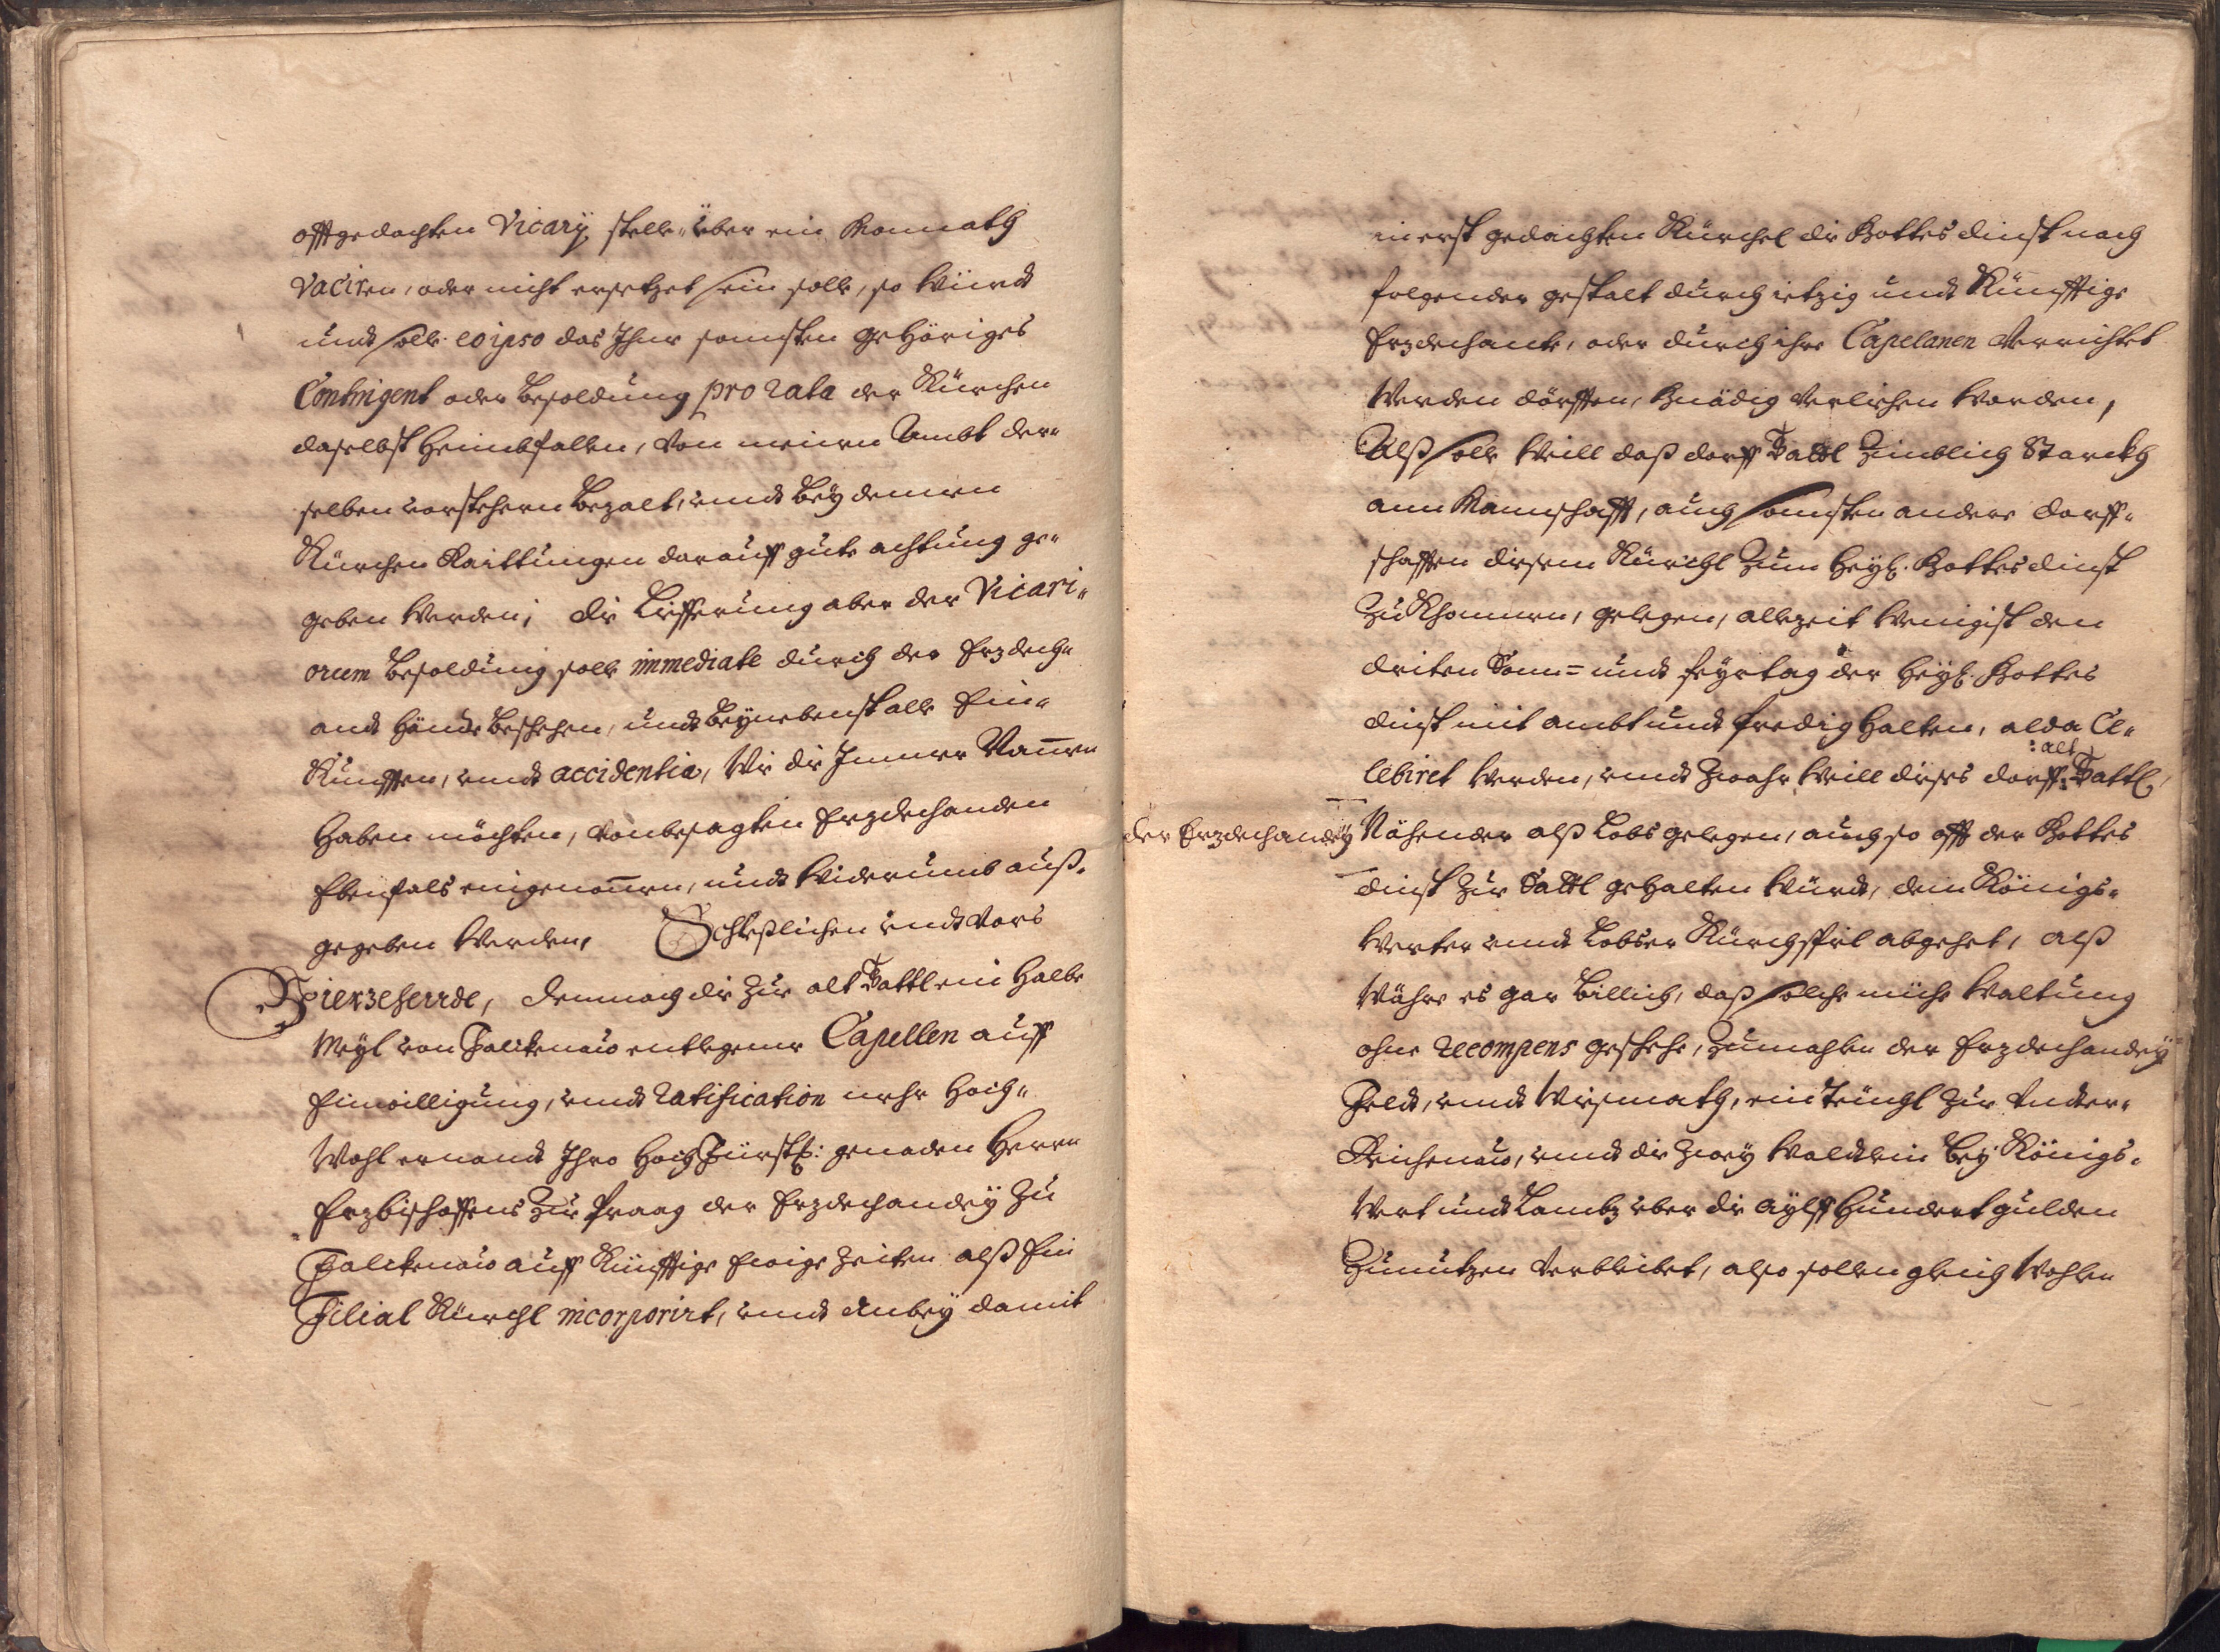 offtgedachten Vicarÿ stelle über ein Monnath
vaciren, oder nicht ersetzet sein solle, so Würdt
undt solle eo ipso das Ihme sonnsten gehöriges
Contingent oder Besoldung pro rata der Kürchen
daselbst heimbfallen, von meinen Ambt der„
selben vorstehern Bezalt, undt Beÿ denen
Kürchen Raittungen darauff gute achtung ge„
geben werden; die Lifferung aber der Vicari„
orum Besoldung solle immediate durch der Erzdech„
ant hände Beschehen, undt Beÿnebenst alle Ein„
Künfften, undt accidentia, Wie die Immer Namen
haben möchten, von besagten Erzdechanden
Ebenfals eingenomen, undt Widerumb auß„
gegeben werden, Schließlichen undt vors
Vierzehende, demnach die zur alt Sattl ein halbe
Meÿl von Falckenaw entlegene Capellen auff
Einwilligung, undt ratification mehr hoch„
Wohl ernandt Ihro hochFürstl: gnaden Herrn
Erzbischoffens zur Praag der Erzdechandeÿ zu
Falckenaw auff Künfftige Ewige Zeiten alß Ein
Filial Kürchl incorporirt, undt anbeÿ damit
in erst gedachten Kürchel die Gottes dinst nach
folgender gestalt durch ietzig undt Künfftige
Erzdechante, oder durch ihre Capelanen Verrichtet
Werden dörffen, Gnädig Verlichen Worden,
Alß solle Weill daß dorff Sattl Zimblich Starckh
ann Mannschafft, auch sonnsten andere dorff„
schafften diesem Kürchl Zum heÿl. Gottesdinst
Zu Khommen, gelegen, allezeit Wenigist den
driten Sonn= undt feÿrtag der heÿl. Gottes
dinst mit ambt undt Predig halten, alda Ce„
lebiret werden, undt Zwahr Weill dises dorff :alt Sattl,
der Erzdechandeÿ Nähender alß Lobs gelegen, auch so offt der Gottes
dinst Zur Sattl gehalten Würdt, dem Königs„
Werter undt Lobser Kürchspiel abgehet, alß
Währe es gar Billich, daß solche mühe Waltung
ohne recompens geschehe, Zumahlen der Erzdechandeÿ
Feldt, undt Wißmath, ein Teüchl zur Unter„
Reichenaw, undt die zweÿ Wäldlein beÿ Königs„
Wert undt Lanntz über die aÿlff hundert gulden
Zunutzen Verbleibet, also sollen gleich Wohlen